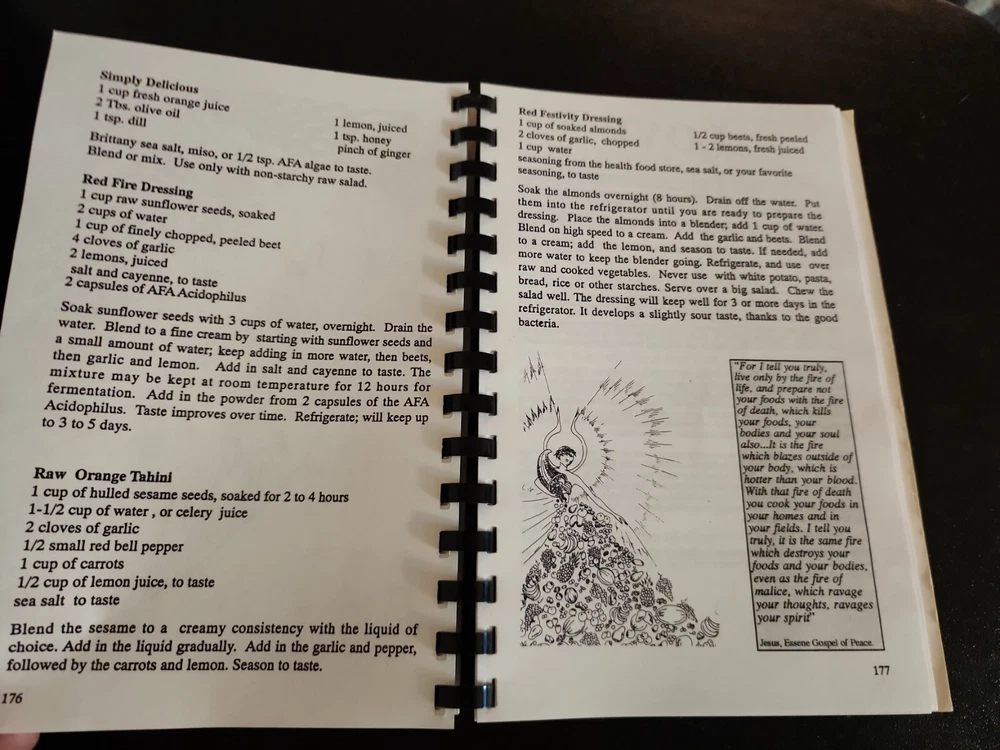 Simply Delicious
1 cup fresh orange juice
2 Tbs. olive oil
1 tsp. dill
1 lemon, juiced
1 tsp. honey
pinch of ginger
Brittany sea salt, miso, or 1/2 tsp. AFA algae to taste.
Blend or mix. Use only with non-starchy raw salad.
Red Fire Dressing
1 cup raw sunflower seeds, soaked
2 cups of water
1 cup of finely chopped, peeled beet
4 cloves of garlic
2 lemons, juiced
salt and cayenne, to taste
2 capsules of AFA Acidophilus
Soak sunflower seeds with 3 cups of water, overnight. Drain the
water. Blend to a fine cream by starting with sunflower seeds and
a small amount of water; keep adding in more water, then beets,
then garlic and lemon. Add in salt and cayenne to taste. The
mixture may be kept at room temperature for 12 hours for
fermentation. Add in the powder from 2 capsules of the AFA
Acidophilus. Taste improves over time. Refrigerate; will keep up
to 3 to 5 days.
Raw Orange Tahini
1 cup of hulled sesame seeds, soaked for 2 to 4 hours
1-1/2 cup of water , or celery juice
2 cloves of garlic
1/2 small red bell pepper
1 cup of carrots
1/2 cup of lemon juice, to taste
sea salt to taste
Blend the sesame to a creamy consistency with the liquid of
choice. Add in the liquid gradually. Add in the garlic and pepper,
followed by the carrots and lemon. Season to taste.
176
Red Festivity Dressing
1 cup of soaked almonds
2 cloves of garlic, chopped
1 cup water
1/2 cup beets, fresh peeled
1 - 2 lemons, fresh juiced
seasoning from the health food store, sea salt, or your favorite
seasoning, to taste
Soak the almonds overnight (8 hours). Drain off the water. Put
them into the refrigerator until you are ready to prepare the
dressing. Place the almonds into a blender; add 1 cup of water.
Blend on high speed to a cream. Add the garlic and beets. Blend
to a cream; add the lemon, and season to taste. If needed, add
more water to keep the blender going. Refrigerate, and use over
raw and cooked vegetables. Never use with white potato, pasta,
bread, rice or other starches. Serve over a big salad. Chew the
salad well. The dressing will keep well for 3 or more days in the
refrigerator. It develops a slightly sour taste, thanks to the good
bacteria.
AAA
AAAAAA
"For I tell you truly,
live only by the fire of
life, and prepare not
your foods with the fire
of death, which kills
your foods, your
bodies and your soul
also...It is the fire
which blazes outside of
your body, which is
hotter than your blood.
With that fire of death
you cook your foods in
your homes and in
your fields. I tell you
truly, it is the same fire
which destroys your
foods and your bodies,
even as the fire of
malice, which ravage
your thoughts, ravages
your spirit"
Jesus, Essene Gospel of Peace.
177